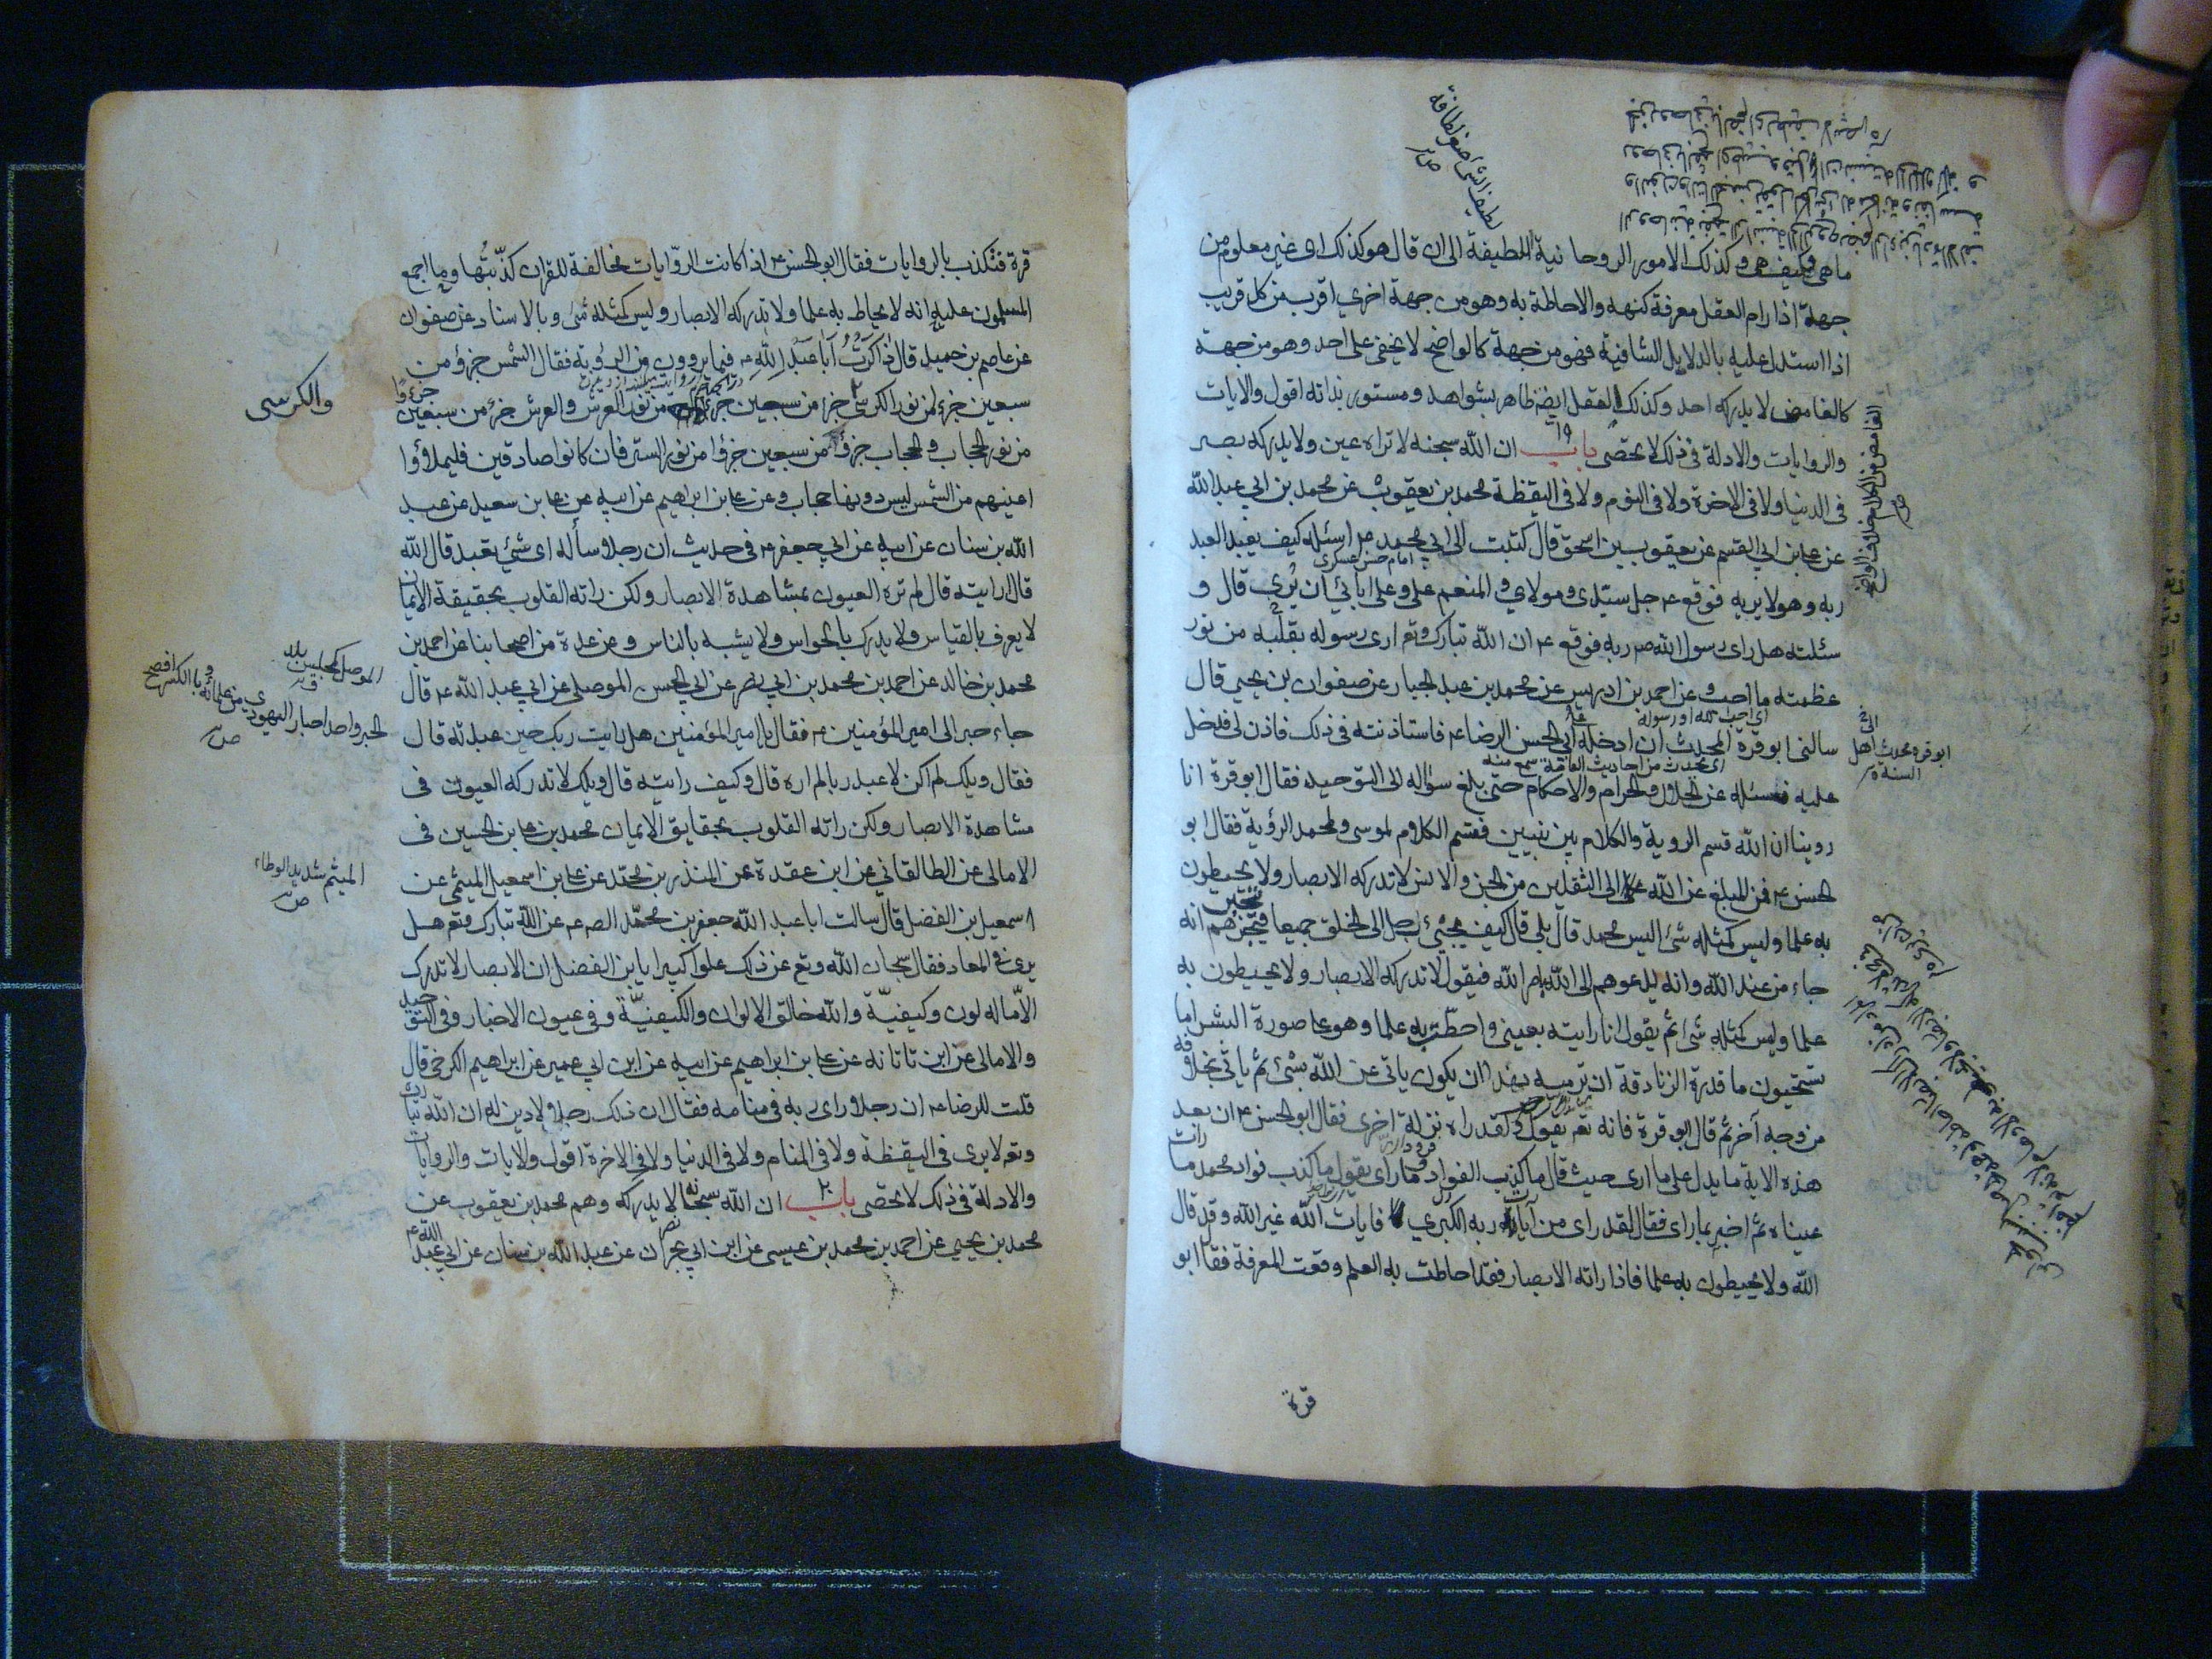 ما هى وكيف هى وكذلك الامور الروحانية اللطيفة الى ان قال هو كذلك اى غير معلوم من
جهة اذا رام العقل معرفة كنهه والاحاطة به وهو من جهة اخرى اقرب من كل قريب
اذا استدل عليه بالدلايل الشافية فهو من جهة كالواضح لا يخفى على احد وهو من جهة
كالغامض لا يدركه احد وكذلك العقل ايضا ظاهر بشواهد ومستور بذاته اقول والايات
والروايات والادلة فى ذلك لا تحصى باب ١٩ ان الله سبحنه لا تراه عين ولا يدركه بصر
فى الدنيا ولا فى الاخرة ولا فى النوم ولا فى اليقظة محمد بن يعقوب عن محمد بن ابي عبد الله
عن على بن ابي القسم عن يعقوب بن اسحق قال كتبت الى ابي محمد ع اسئله كيف يعبد العبد
امام حسن عسكرى
ربه وهو لا يريه فوقع ع جل سيدى ومولاي والمنعم علي وعلى ابائي ان يُرى قال و
سئلته هل راى رسول الله ص ربه فوقع ع ان الله تبارك وتع ارى رسوله بقلبه من نور
عظمته ما احب وعن احمد بن ادريس عن محمد بن عبد الجبار عن صفوان بن يحيى قال
اى احب الله او رسوله
سالنى ابو قرة المحدث ان ادخله الى ابي الحسن الرضا ع فاستاذنته فى ذلك فاذن لى فدخل
اى يحدث من احاديث العامة سمع منه
عليه فسئله عن الحلال والحرام والاحكام حتى بلغ سؤاله الى التوحيد فقال ابو قرة انا
روينا ان الله قسم الروية والكلام بين نبيين فقسم الكلام لموسى ولمحمد الرؤية فقال ابو
الحسن ع فمن المبلغ عن الله الى الثقلين من الجن والانس لا تدركه الابصار ولا يحيطون
به علما وليس كمثله شئ اليس محمد قال بلى قال كيف يجئ رجل الى الخلق جميعا فيخبرهم انه
جاء من عند الله وانه يدعوهم الى الله بامر الله فيقول لا تدركه الابصار ولا يحيطون به
علما وليس كمثله شئ ثم يقول انا رايته بعينى واحطت به علما وهو على صورة البشر اما
تستحيون ما قدرة الزنادقة ان ترميه بهذا ان يكون ياتى عن الله بشئ ثم ياتى بخلافه
من وجه آخر ثم قال ابو قرة فانه تع يقول ولقد راه نزلة اخرى فقال ابو الحسن ع ان بعد
هذه الاية ما يدل على ما راى حيث قال ما كذب الفواد ما راى يقول ما كذب فواد محمد ما رات
عيناه ثم اخبر بما راى فقال لقد راى من آيات ربه الكبرى فايات الله غير الله وقد قال
الله ولا يحيطون به علما فاذا راته الابصار فقد احاطت به العلم وقعت المعرفة فقال ابو
قرة
لطيف الشئ اصغر لطافة
الغامض من الكلام خلاف الواضح
ابو قرة محدث اهل
السنة
قرة فتكذب بالروايات فقال ابو الحسن ع اذا كانت الروايات مخالفة للقران كذّبتُها وما اجمع
المسلمون عليه انه لا يحاط به علما ولا تدركه الابصار وليس كمثله شئ وبالاسناد عن صفوان
عن عاصم بن حميد قال ذاكرتُ ابا عبد الله ع فيما يروون من الرؤية فقال الشمس جزؤ من
سبعين جزء من نور الكرسى جزء من سبعين جزءا من نور العرش والعرش جزء من سبعين جزءًا
من نور الحجاب والحجاب جزؤ من سبعين جزؤا من نور الستر فان كانوا صادقين فليملاؤوا
اعينهم من الشمس ليس دونها حجاب وعن على بن ابراهيم عن ابيه عن على بن سعيد عن عبد
الله بن سنان عن ابيه عن ابي جعفر ع فى حديث ان رجلا سأله اى شئ يعبد قال الله
قال ارايته قال لم تره العيون بمشاهدة الابصار ولكن راته القلوب بحقيقة الايمان
لا يعرف بالقياس ولا يدرك بالحواس ولا يشبه بالناس وعن عدة من اصحابنا عن احمد بن
محمد بن خالد عن احمد بن محمد بن ابي نصر عن ابي الحسن الموصلى عن ابي عبد الله ع قال
جاء حبر الى امير المؤمنين ع فقال يا امير المؤمنين هل رايت ربك حين عبدته قال
فقال ويلك لم اكن لاعبد ربا لم اره قال وكيف رايته قال ويلك لا تدركه العيون فى
مشاهدة الابصار ولكن راته القلوب بحقايق الايمان محمد بن على بن الحسين فى
الامالى عن الطالقانى عن ابن عقدة عن المنذر بن محمد عن على بن اسمعيل الميثمى عن
اسمعيل بن الفضل قال سالت ابا عبد الله جعفر بن محمّد الصـ ع عن الله تبارك وتع هل
يرى فى المعاد فقال سبحان الله وتع عن ذلك علوا كبيرا يابن الفضل ان الابصار لا تدرك
الا ما له لون وكيفيّة والله خالق الالوان والكيفيّة وفى عيون الاخبار وفى التوحيد
والامالى عن ابن تاتانه عن على بن ابراهيم عن ابيه عن ابن ابي عمير عن ابراهيم الكرخى قال
قلت للرضا ع ان رجلا راى ربه فى منامه فقال ان ذلك رجل لا دين له ان الله تبارك
وتع لا يرى فى اليقظة ولا فى المنام ولا فى الدنيا ولا فى الاخرة اقول والايات والروايات
والادلة فى ذلك لا تحصى باب ٢٠ ان الله سبحانه لا يدركه وهم محمد بن يعقوب عن
محمد بن يحيى عن احمد بن محمد بن عيسى عن ابن ابي نجران عن عبد الله بن سنان عن ابي عبد الله ع
والكرسى
الموصل كمجلس بلد
الحبر واحد احبار اليهود
الميثم شديد الوطاء